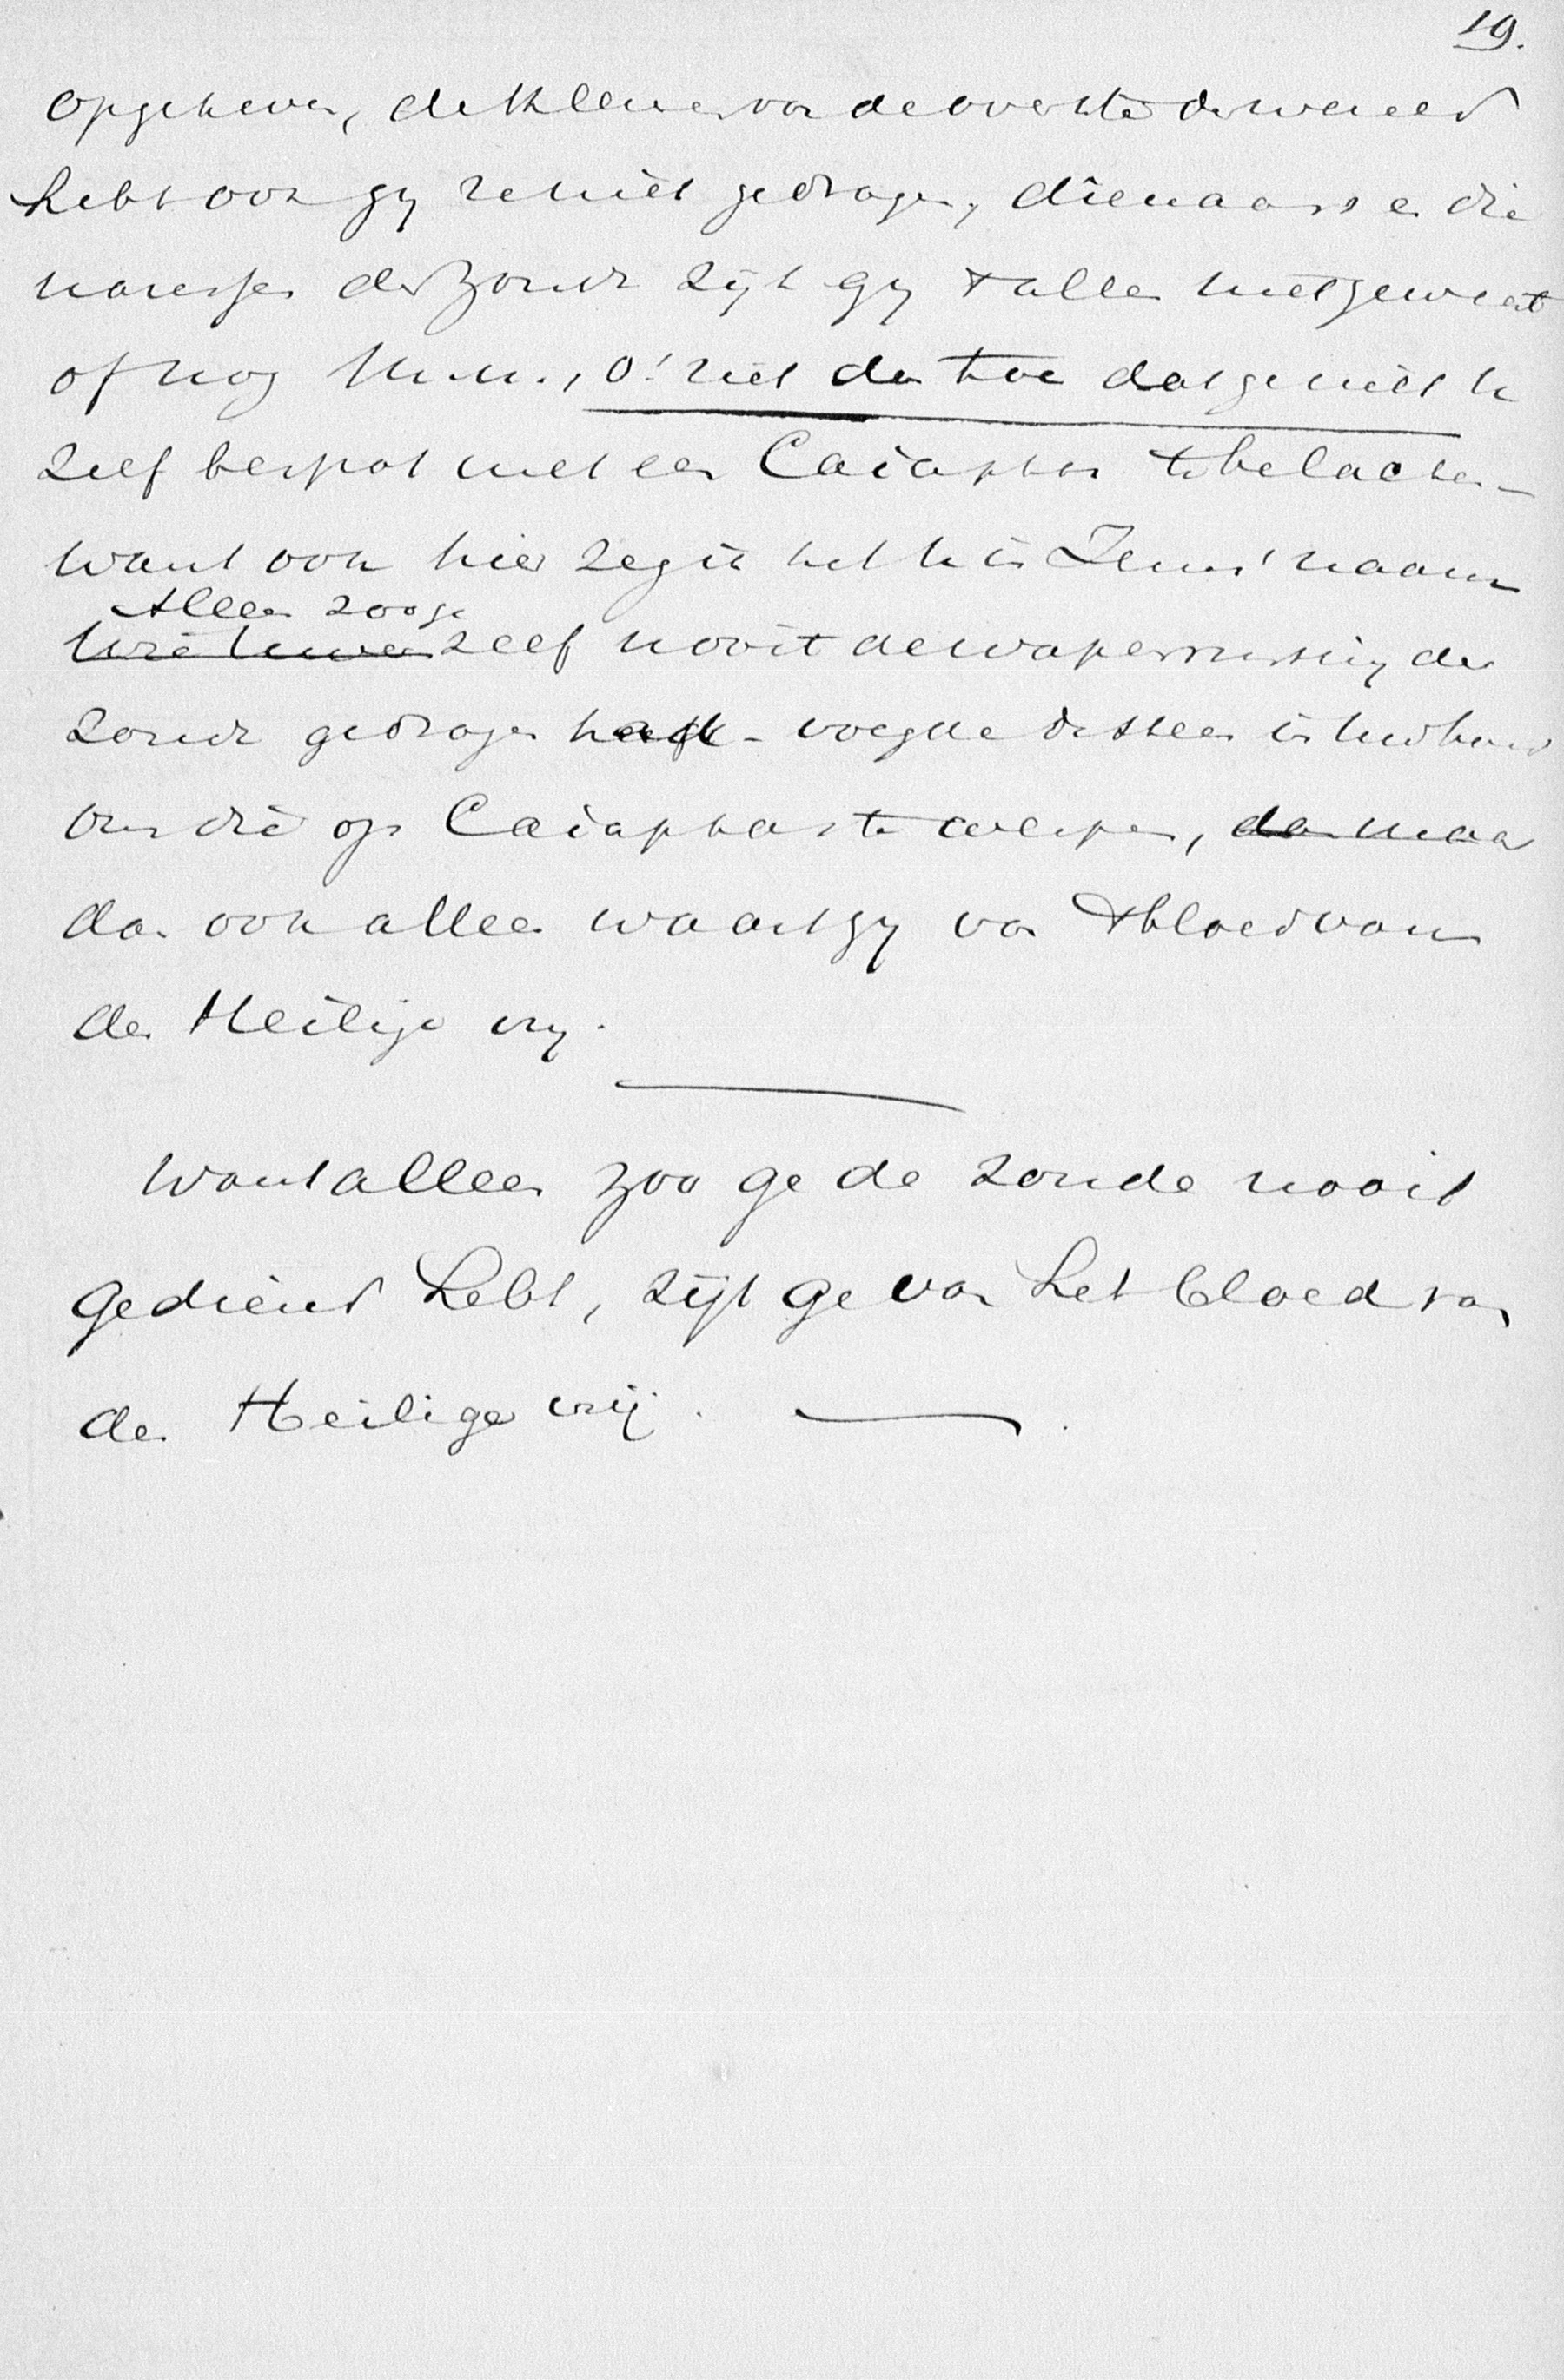 19.
opgeheven, de kleuren van de overste der wereld
hebt ook gy ze niet gedragen, dienaars en die
naressen der zonde zijt gy + allen niet geweest
of nog                    , o! ziet dan toe dat ge niet u
zelf bespot met een Caiaphas te belachen –
want ook hier zeg ik het u in Jezus' naam
Alleen zoo ge
zelf nooit de wapenrusting der
zonde gedragen hebt – voegde de steen in uw hand
om die op Caiaphas te werpen, dan maar
dan ook alleen waart gy van + bloed van
den Heilige vry.
Want alleen zoo ge de zonde nooit
gediend hebt, zijt ge van het bloed van
den Heilige vrij.